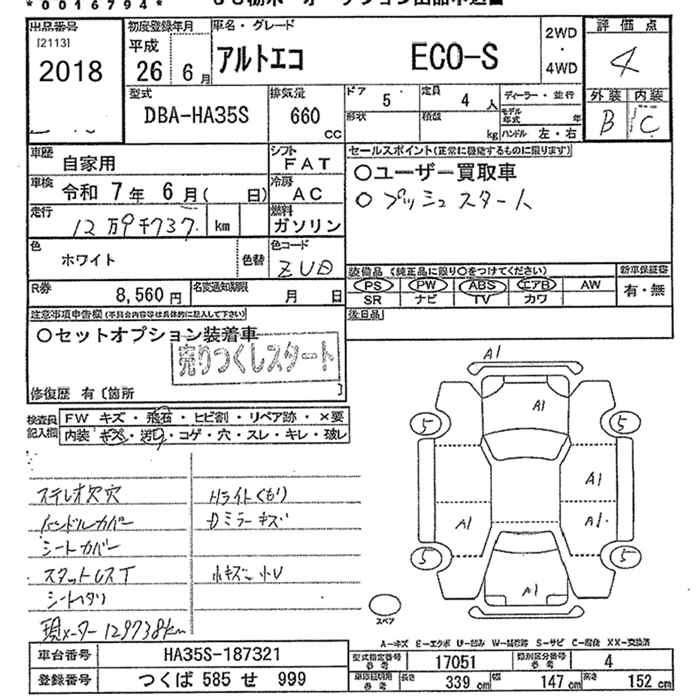 *0016794*
出品番号 [2113] 2018
初度登録年月 平成 26年 6月
車名・グレード アルトエコ ECO-S
2WD・4WD
評価点 4
外装 B 内装 C
型式 DBA-HA35S
排気量 660 CC
ドア 5 形状
定員 4人 積載 kg
ディーラー・並行
モデル年式 年
ハンドル 左・右
車歴 自家用
シフト FAT
車検 令和 7年 6月( 日)
冷房 AC
走行 12万9千737 km
燃料 ガソリン
セールスポイント(正常に機能するものに限ります)
○ユーザー買取車
○プッシュスタート
色 ホワイト 色替
色コード ZUD
装備品(純正品に限り○をつけてください)
PS PW ABS エアB AW
SR ナビ TV カワ
新車保証書 有・無
R券 8,560円
名変通知期限 月 日
後日品
注意事項申告欄(不具合内容等は具体的に記入して下さい)
○セットオプション装着車
売りつくしスタート
修復歴 有〔箇所 〕
検査員記入欄
FW キズ・飛石・ヒビ割・リペア跡・×要
内装 キズ・汚れ・コゲ・穴・スレ・キレ・破レ
ステレオ欠穴 Hライトくもり
ハンドルカバー Dミラーキズ
シートカバー
スタットレスT 小キズ小U
シートヘタリ
現メーター129738km
A1
A1
5 5
A1
A1 A1
5 5
A1
スペア
A-キズ E-エクボ U-凹み W-補修跡 S-サビ C-腐蝕 XX-交換済
車台番号 HA35S-187321
型式指定番号 参考 17051
類別区分番号 参考 4
登録番号 つくば 585 せ 999
長さ 339 cm 幅 147 cm 高さ 152 cm